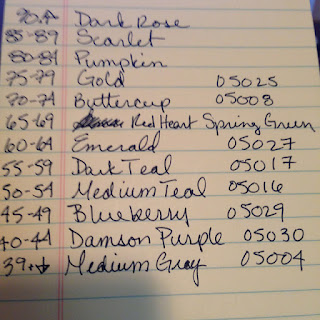 90+ Dark Rose
85-89 Scarlet
80-84 Pumpkin
75-79 Gold 05025
70-74 Buttercup 05008
65-69 Red Heart Spring Green
60-64 Emerald 05027
55-59 Dark Teal 05017
50-54 Medium Teal 05016
45-49 Blueberry 05029
40-44 Damson Purple 05030
39+↓ Medium Gray 05004